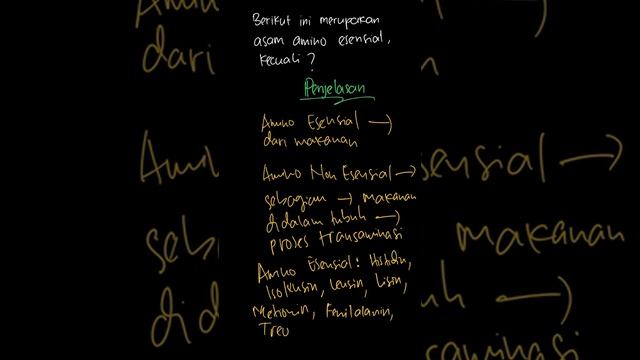 Berikut ini merupakan
asam amino esensial,
kecuali?
Penjelasan
Amino Esensial →
dari makanan
Amino Non Esensial →
sebagian → makanan
didalam tubuh →
proses transaminasi
Amino Esensial : Histidin,
Isoleusin, Leusin, Lisin,
Metionin, Fenilalanin,
Treo